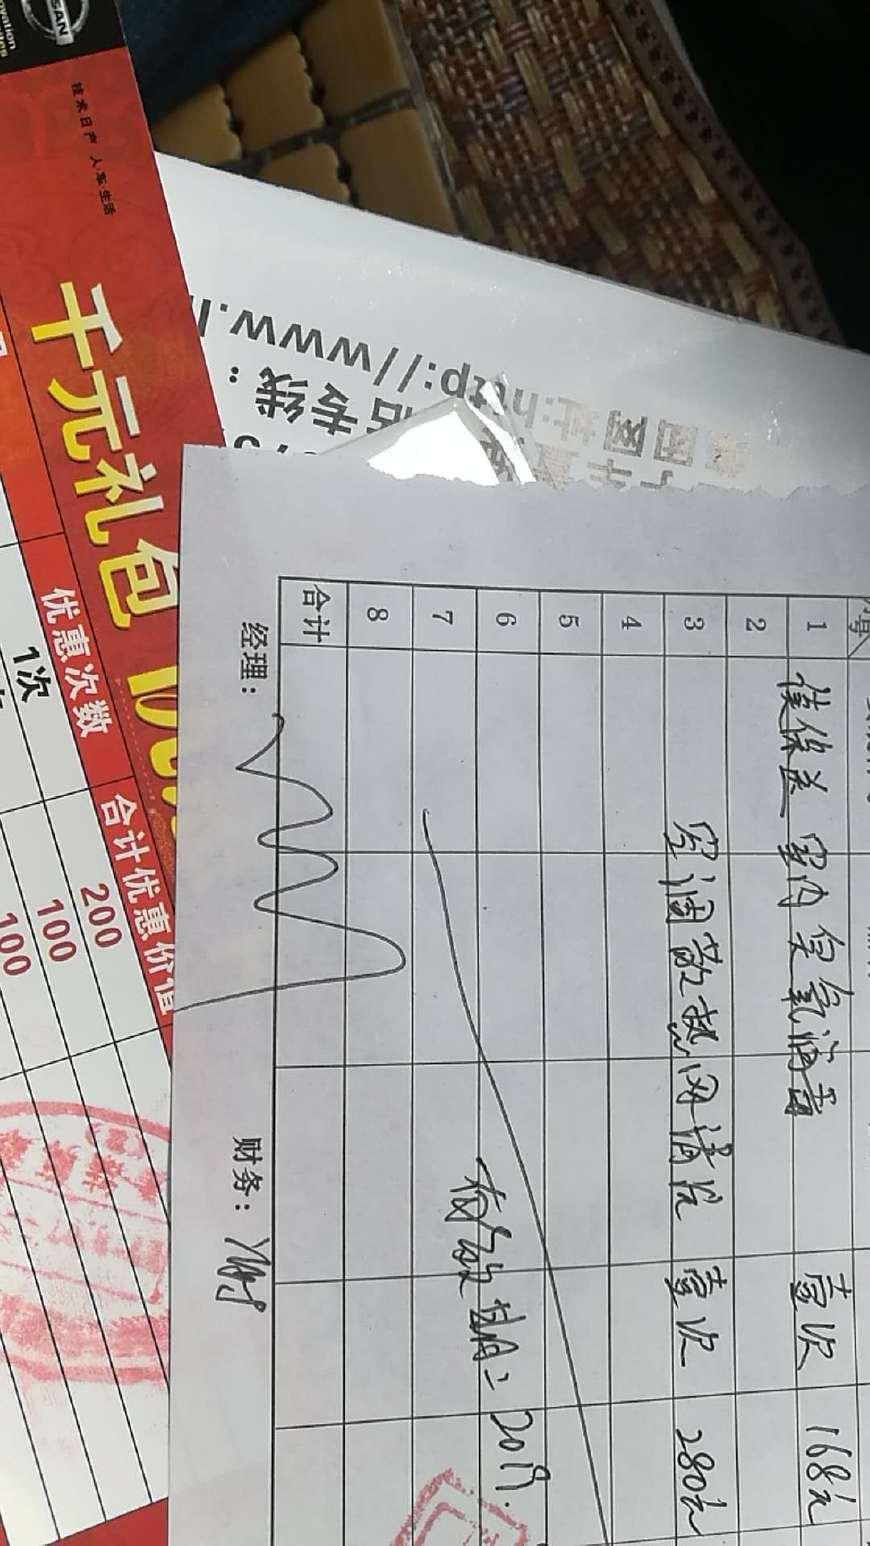 技术日产 人·车·生活
千元礼包
优惠次数
合计优惠价值
1次
200
100
100
http://www.
专线：
网址
号
1 使保送 室内臭氧消毒 壹次 168元
2
3 空调散热网清洗 壹次 280元
4
5
6 有效期：2019.
7
8
合计
经理：
财务：